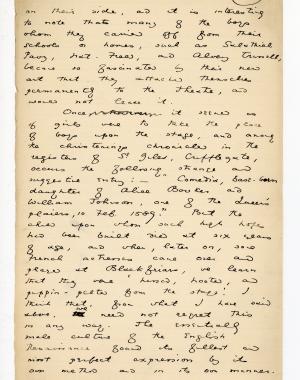 on their side, and it is interesting
to note that many of the boys
whom they carried off from their
schools or homes, such as Salathiel
Pavy, Nat. Field, and Alvery Trussell,
became so fascinated by their new
art that they attached themselves
permanently to the theatre, and
would not leave it.
Once it seemed as
if girls were to take the place
of boys upon the stage, and among
the christenings chronicled in the
registers of St Giles, Cripplegate,
occurs the following strange and
suggestive entry: "Comedia, base-born
daughter of Alice Bowker and
William Johnson, one of the Queen's
plaiers, 10 Feb. 1589." But the
child upon whom such high hopes
had been built died at six years
of age, and when, later on, some
French actresses came over and
played at Blackfriars, we learn
that they were 'hissed, hooted, and
pippin-pelted from the stage.' I
think that, from what I have said
above, we need not regret this
in any way. The essentially
male culture of the English
Renaissance found its fullest and
most perfect expression by its
own method and in its own manner.